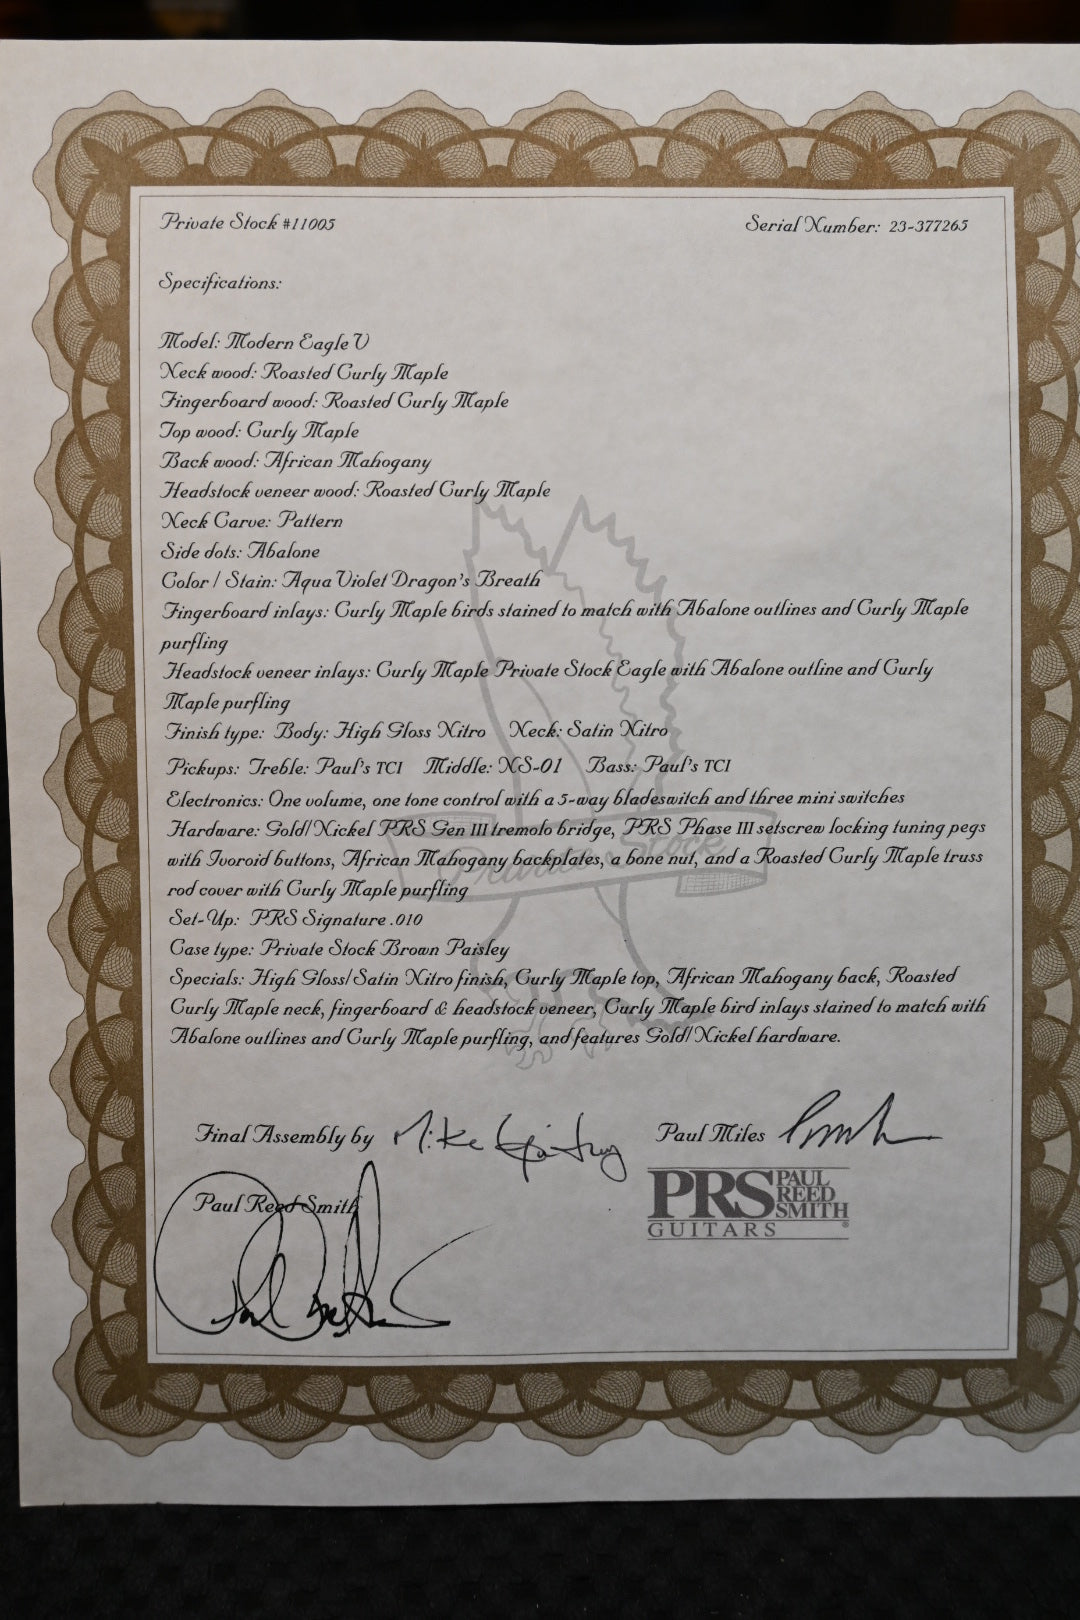 Private Stock #11005
Serial Number: 23-377265
Specifications:
Model: Modern Eagle V
Neck wood: Roasted Curly Maple
Fingerboard wood: Roasted Curly Maple
Top wood: Curly Maple
Back wood: African Mahogany
Headstock veneer wood: Roasted Curly Maple
Neck Carve: Pattern
Side dots: Abalone
Color / Stain: Aqua Violet Dragon's Breath
Fingerboard inlays: Curly Maple birds stained to match with Abalone outlines and Curly Maple
purfling
Headstock veneer inlays: Curly Maple Private Stock Eagle with Abalone outline and Curly
Maple purfling
Finish type: Body: High Gloss Nitro Neck: Satin Nitro
Pickups: Treble: Paul's TCI Middle: NS-01 Bass: Paul's TCI
Electronics: One volume, one tone control with a 5-way bladeswitch and three mini switches
Hardware: Gold/Nickel PRS Gen III tremolo bridge, PRS Phase III setscrew locking tuning pegs
with Ivoroid buttons, African Mahogany backplates, a bone nut, and a Roasted Curly Maple truss
rod cover with Curly Maple purfling
Private Stock
Set-Up: PRS Signature .010
Case type: Private Stock Brown Paisley
Specials: High Gloss/Satin Nitro finish, Curly Maple top, African Mahogany back, Roasted
Curly Maple neck, fingerboard & headstock veneer, Curly Maple bird inlays stained to match with
Abalone outlines and Curly Maple purfling, and features Gold/Nickel hardware.
Final Assembly by Mike
Paul Miles
Paul Reed Smith
PRS PAUL
REED
SMITH
GUITARS ®